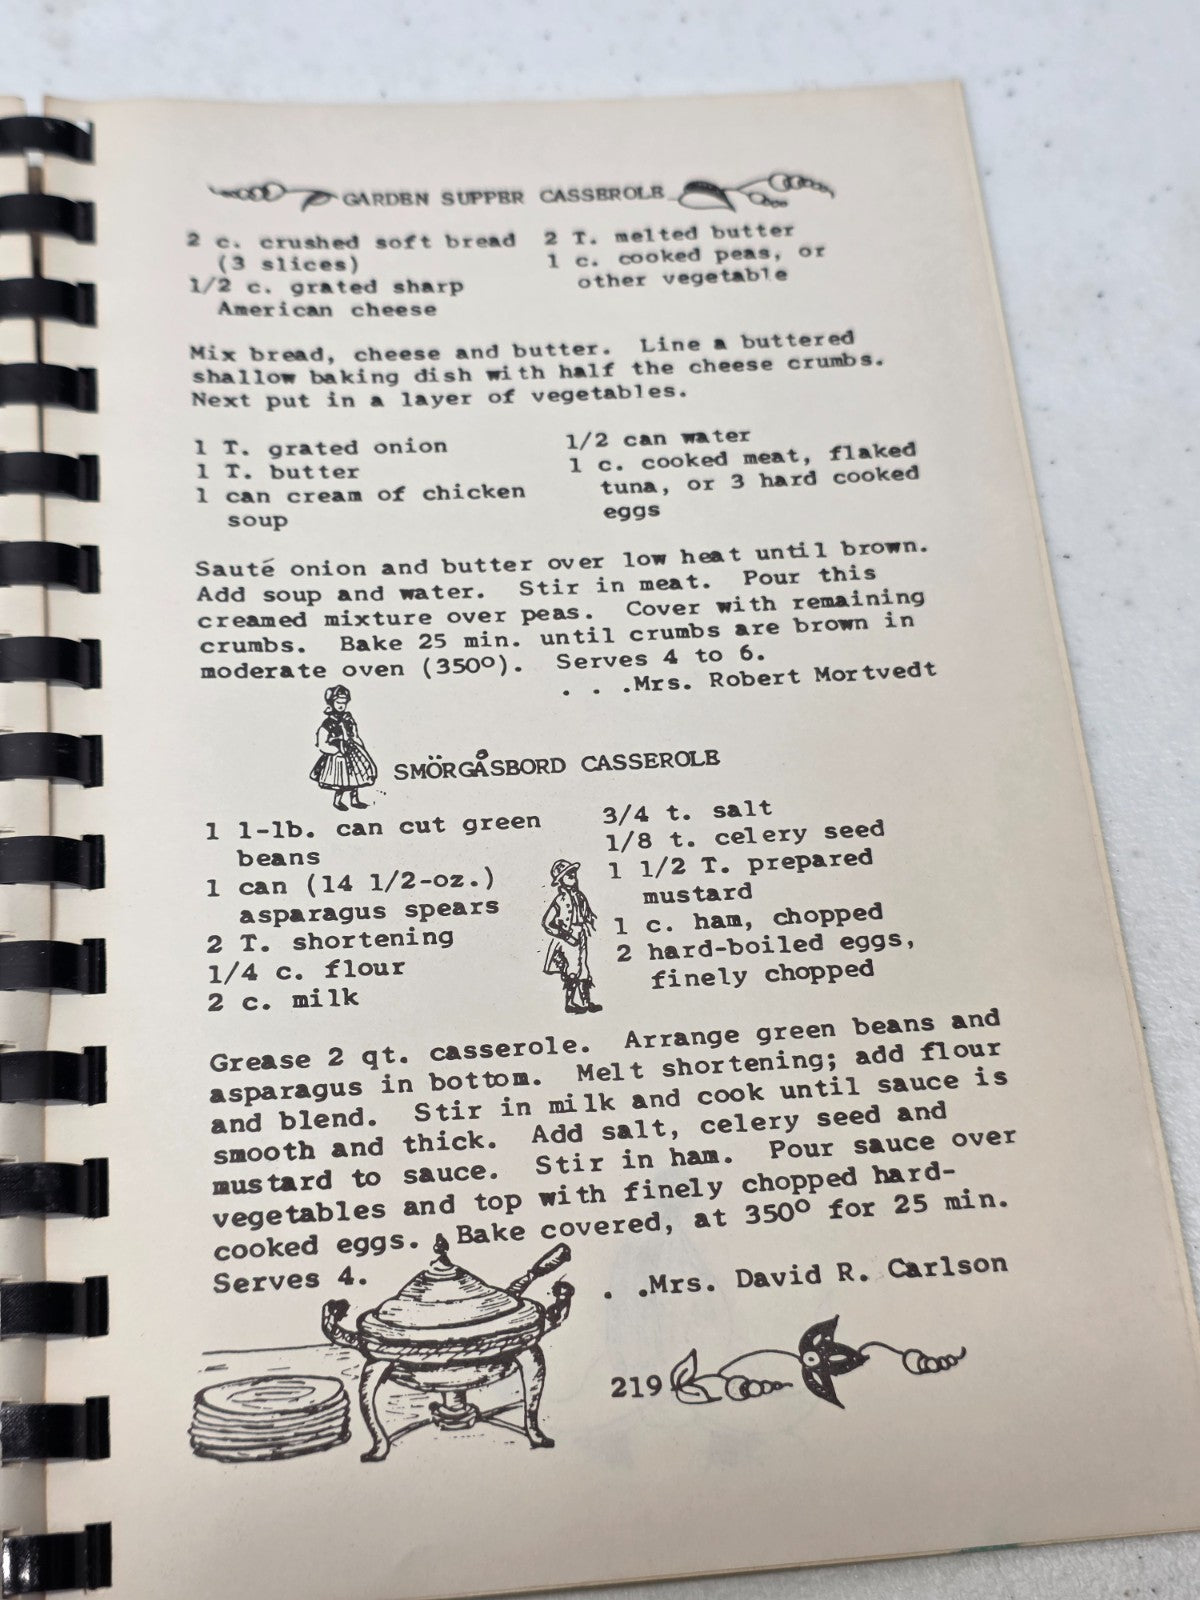 GARDEN SUPPER CASSEROLE
2 c. crushed soft bread
(3 slices)
1/2 c. grated sharp
American cheese
2 T. melted butter
1 c. cooked peas, or
other vegetable
Mix bread, cheese and butter. Line a buttered
shallow baking dish with half the cheese crumbs.
Next put in a layer of vegetables.
1 T. grated onion
1 T. butter
1 can cream of chicken
soup
1/2 can water
1 c. cooked meat, flaked
tuna, or 3 hard cooked
eggs
Sauté onion and butter over low heat until brown.
Add soup and water. Stir in meat. Pour this
creamed mixture over peas. Cover with remaining
crumbs. Bake 25 min. until crumbs are brown in
moderate oven (350º). Serves 4 to 6.
. . .Mrs. Robert Mortvedt
SMÖRGÅSBORD CASSEROLE
1 1-lb. can cut green
beans
1 can (14 1/2-oz.)
asparagus spears
2 T. shortening
1/4 c. flour
2 c. milk
3/4 t. salt
1/8 t. celery seed
1 1/2 T. prepared
mustard
1 c. ham, chopped
2 hard-boiled eggs,
finely chopped
Grease 2 qt. casserole. Arrange green beans and
asparagus in bottom. Melt shortening; add flour
and blend. Stir in milk and cook until sauce is
smooth and thick. Add salt, celery seed and
mustard to sauce. Stir in ham. Pour sauce over
vegetables and top with finely chopped hard-
cooked eggs. Bake covered, at 350º for 25 min.
Serves 4.
. .Mrs. David R. Carlson
219